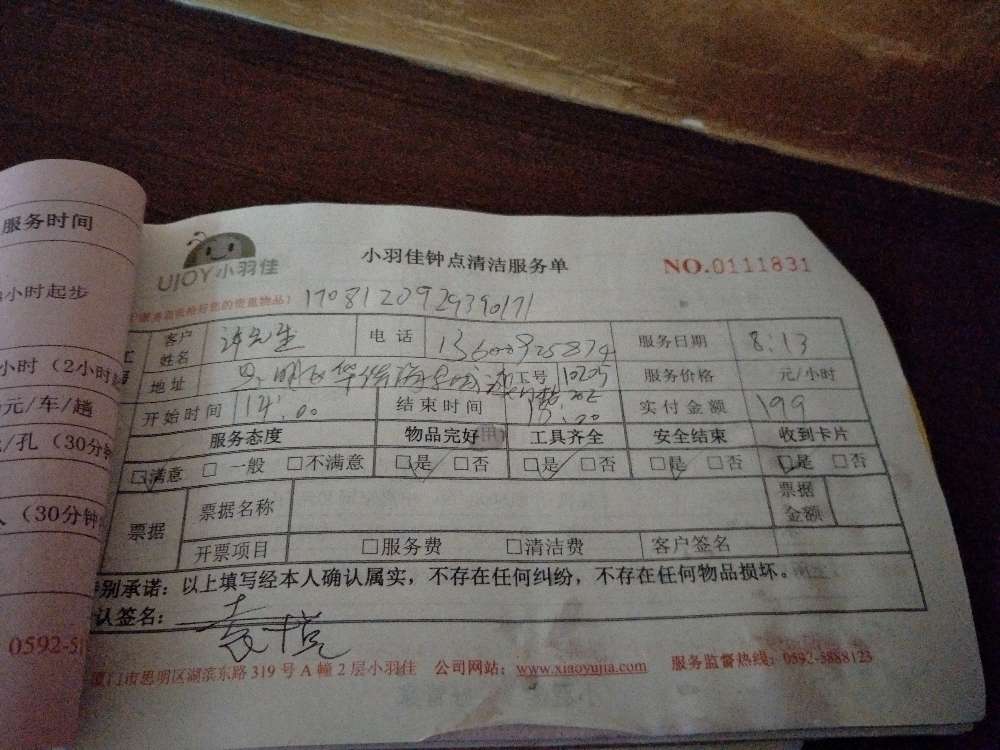 服务时间
小时起步
小时（2小时
元/车/趟
/孔（30分钟
（30分钟
0592-5
UJOY小羽佳
小羽佳钟点清洁服务单
NO.0111831
1708120929390171
客户姓名 电话 服务日期 8:13
地址 10205 服务价格 元/小时
开始时间 14:00 结束时间 实付金额 199
服务态度 物品完好 工具齐全 安全结束 收到卡片
☑满意 □一般 □不满意 ☑是 □否 ☑是 □否 ☑是 □否 ☑是 □否
票据 票据名称 票据金额
开票项目 □服务费 □清洁费 客户签名
别承诺：以上填写经本人确认属实，不存在任何纠纷，不存在任何物品损坏。
认签名：
厦门市思明区湖滨东路319号A幢2层小羽佳 公司网站：www.xiaoyujia.com 服务监督热线：0592-5888123